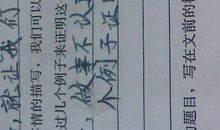 ，就让我们
情的描写，我们可以
过几个例子来证明这
，做事不认
人例子证
题目，写在文前的